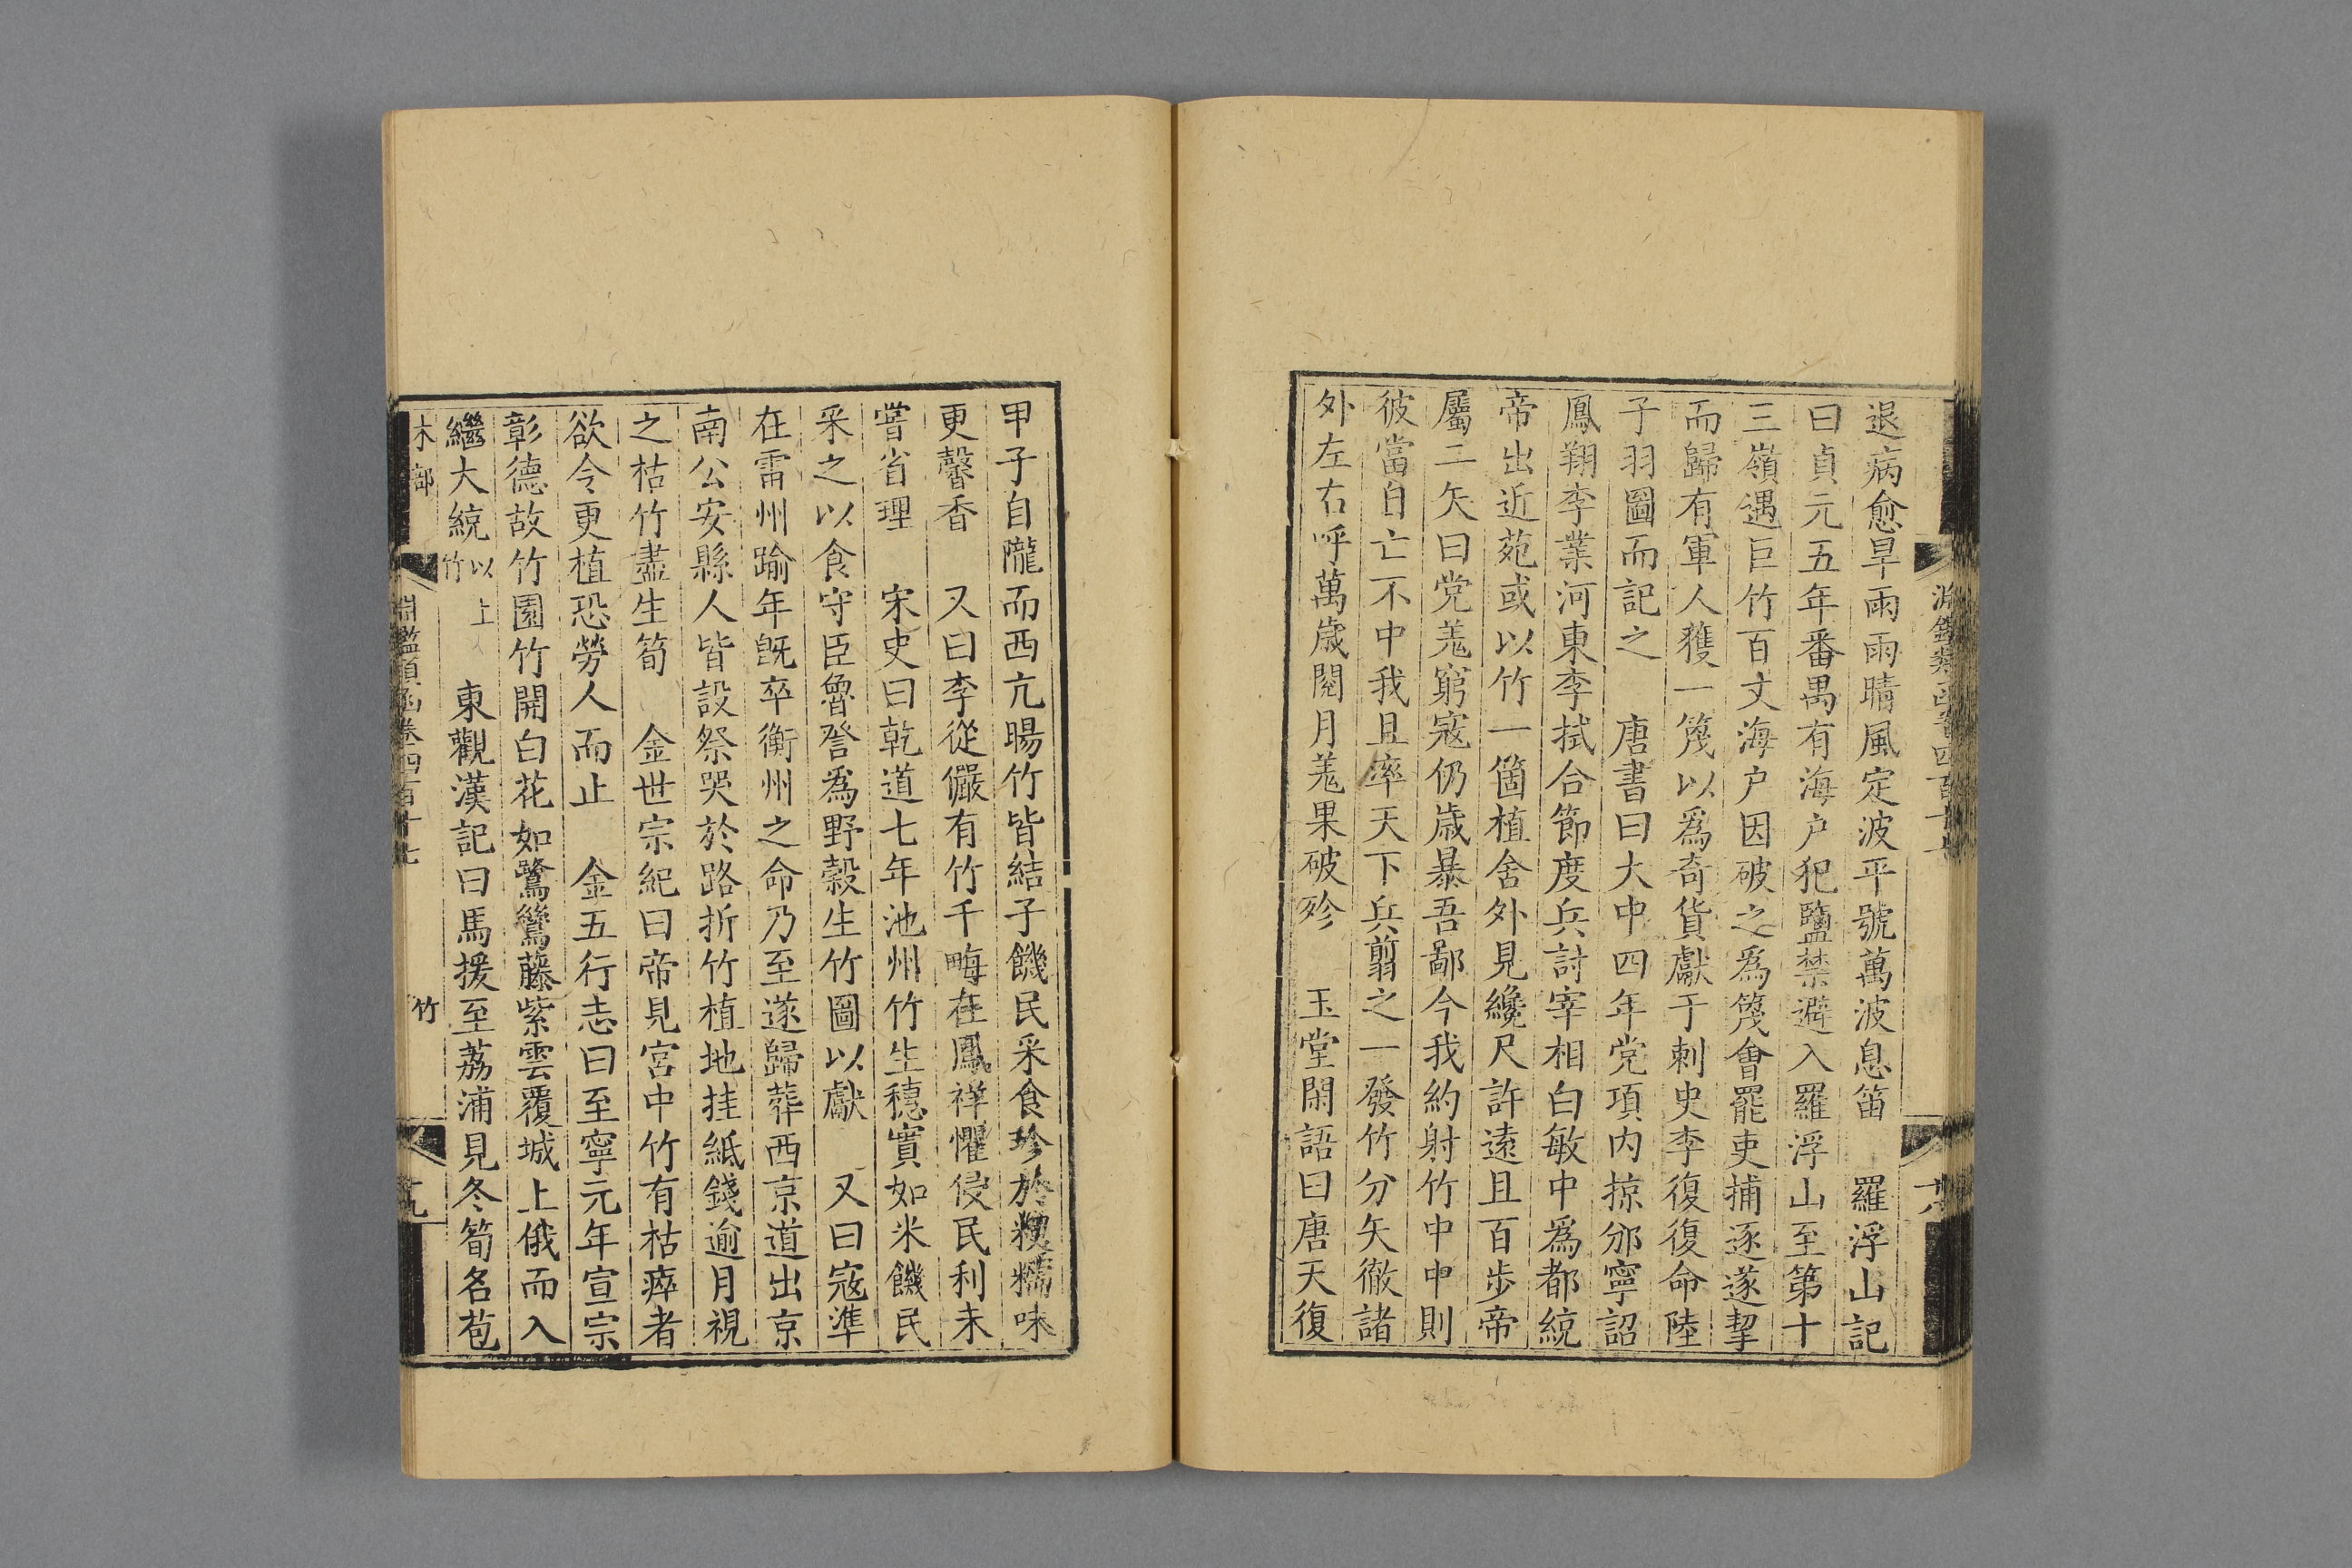 退病愈旱雨雨晴風定波平號萬波息笛　羅浮山記
曰貞元五年番禺有海户犯鹽禁避入羅浮山至第十
三嶺遇巨竹百丈海户因破之爲篾會罷吏捕逐遂挈
而歸有軍人獲一篾以爲奇貨獻于刺史李復復命陸
子羽圖而記之　唐書曰大中四年党項内掠邠寧詔
鳳翔李業河東李拭合節度兵討宰相白敏中爲都統
帝出近苑或以竹一箇植舍外見纔尺許遠且百步帝
屬二矢曰党羗窮寇仍歲暴吾鄙今我約射竹中中則
彼當自亡不中我且率天下兵翦之一發竹分矢徹諸
外左右呼萬歲閱月羗果破殄　玉堂閑語曰唐天復
甲子自隴而西亢暘竹皆結子饑民采食珍於粳糯味
更馨香　又曰李從儼有竹千畮在鳳祥懼侵民利未
嘗省理　宋史曰乾道七年池州竹生穗實如米饑民
采之以食守臣魯詧爲野穀生竹圖以獻　又曰寇準
在雷州踰年旣卒衡州之命乃至遂歸葬西京道出京
南公安縣人皆設祭哭於路折竹植地挂紙錢逾月視
之枯竹盡生筍　金世宗紀曰帝見宮中竹有枯瘁者
欲令更植恐勞人而止　金五行志曰至寧元年宣宗
彰德故竹園竹開白花如鷺鷥藤紫雲覆城上俄而入
繼大統以上竹　東觀漢記曰馬援至荔浦見冬筍名苞
木部　淵鑑類函卷四百十七　竹　十九